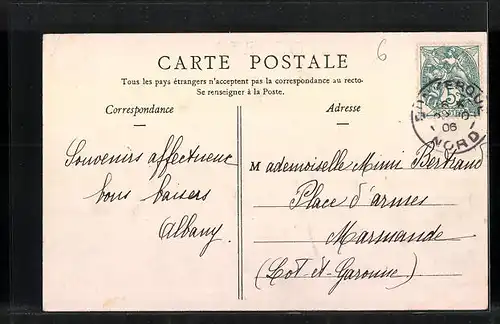 6
CARTE POSTALE
Tous les pays étrangers n'acceptent pas la correspondance au recto-
Se renseigner à la Poste.
Correspondance
Adresse
5
06
NORD
Souvenirs affectueux
bons baisers
Albany
Mademoiselle Mimi Bertrand
Place d'armes
Marmande
(Lot-et-Garonne)